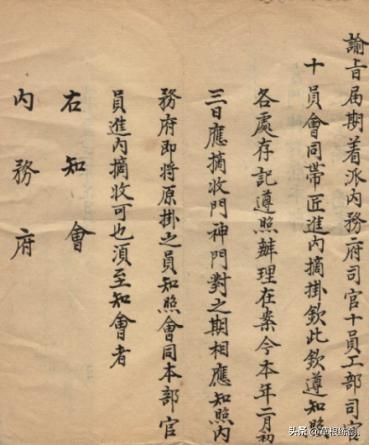 諭旨届期着派內務府司官十員工部司官
十員會同帶匠進內摘掛欽此欽遵知照
各處存記遵照辦理在案今本年二月初
三日應摘收門神門對之期相應知照內
務府即将原掛之員知照會同本部官
員進內摘收可也湏至知會者
右知會
內務府
头条 @草根陈剑